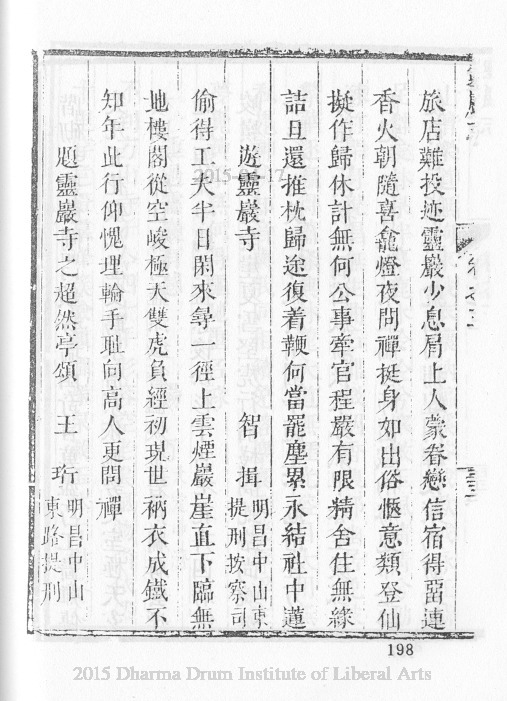 卷之三
旅店難投迹靈巖少息肩上人蒙眷戀信宿得畱連
香火朝隨喜龕燈夜問禪挺身如出俗愜意類登仙
擬作歸休計無何公事牽官程嚴有限精舍住無緣
詰旦還推枕歸途復着鞭何當罷塵累永結社中蓮
遊靈巖寺 智揖 明昌中山東提刑按察司
偷得工夫半日閑來尋一徑上雲煙巖崖直下臨無
地樓閣從空峻極天雙虎負經初現世衲衣成鐵不
知年此行仰愧埋輪手耻向高人更問禪
題靈巖寺之超然亭頌 王珩 明昌中山東路提刑
2015
17
198
2015 Dharma Drum Institute of Liberal Arts